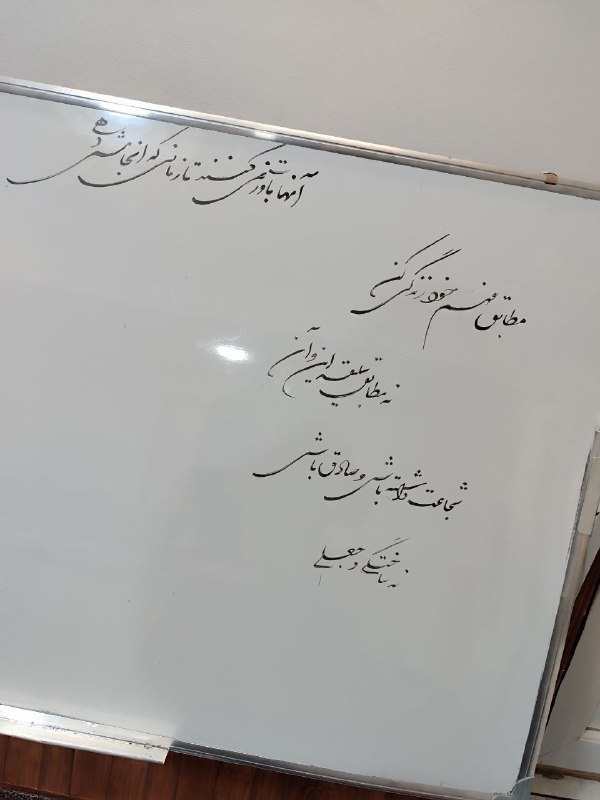 آنها باورت نمی کنند تا زمانی که انجامش دهی
مطابق فهم خود زندگی کن
نه مطابق سلیقه این و آن
شجاعت داشته باشی و صادق باشی
نه ساختگی و جعلی